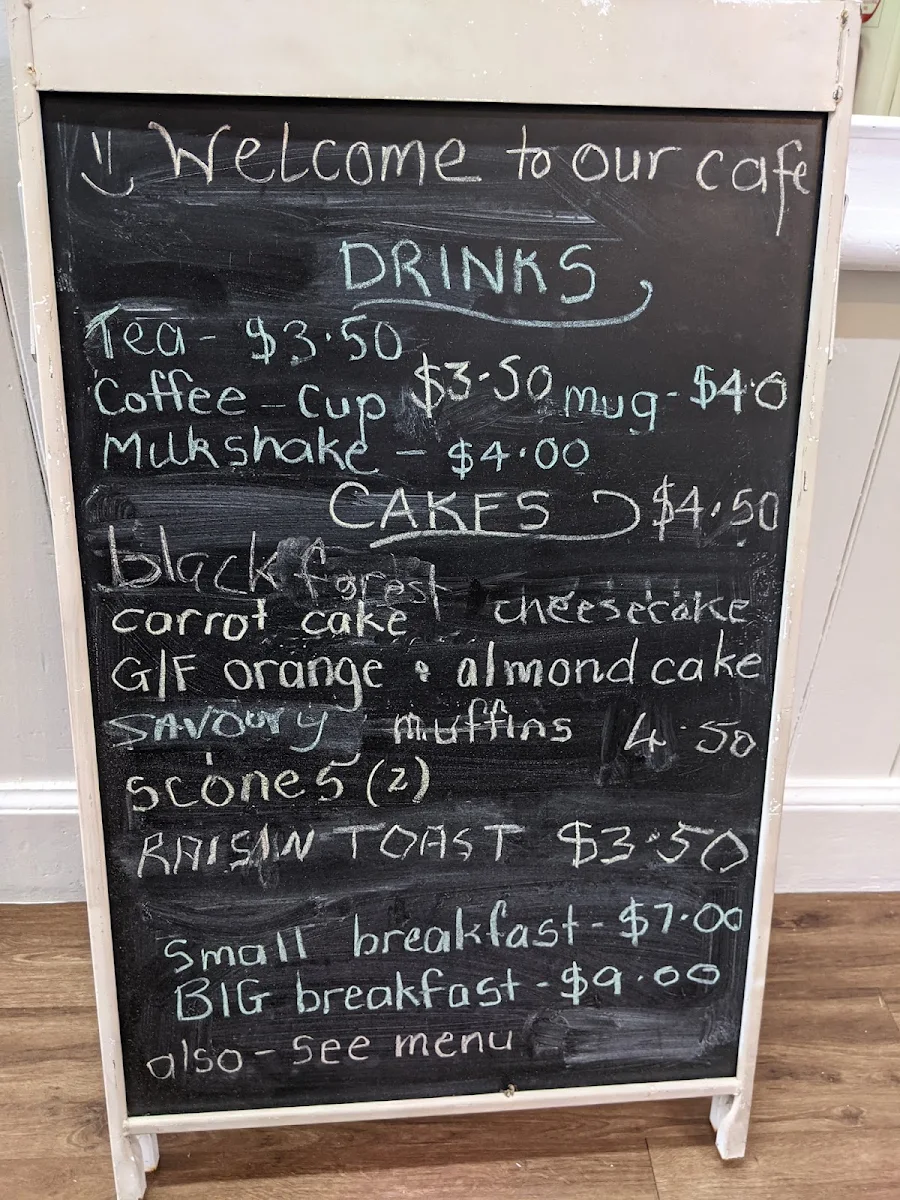 Welcome to our cafe
DRINKS
Tea - $3.50
Coffee - Cup $3.50 mug - $4.0
Milkshake - $4.00
CAKES $4.50
black forest
carrot cake cheesecake
G/F orange & almond cake
SAVOURY muffins 4.50
scones (2)
RAISIN TOAST $3.50
Small breakfast - $7.00
BIG breakfast - $9.00
also - see menu